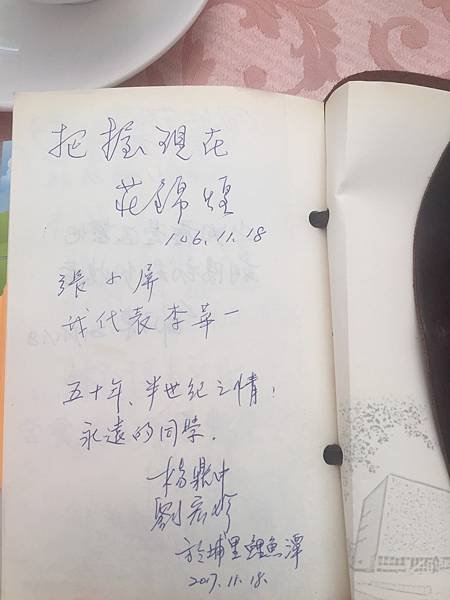 把握現在
莊錦煌
106.11.18
張小屏
我代表李華一
五十年、半世紀之情！
永遠的同學.
楊鼎中
劉宏
於埔里鯉魚潭
2017.11.18.